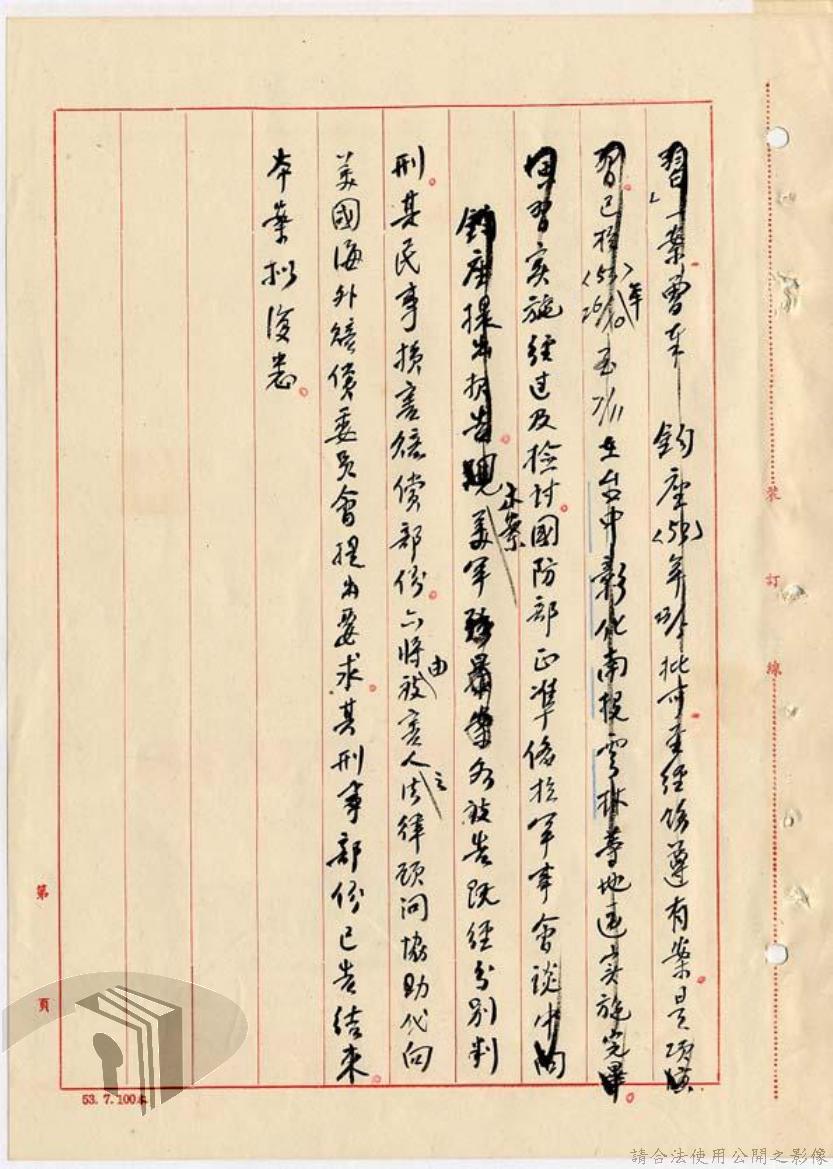 習」一案曾奉 鈞座(53)年 批可並經飭遵有案是項演
習已於(53)年 26/10 至 7/11 在台中彰化南投雲林等地區實施完畢
習實施經过及檢討國防部正準俻於軍事會談中向
鈞座提出报告現 本案美軍 各被告既經分別判
刑。其民事損害賠償部份。亦將由被害人之法律顾问協助代向
美國海外賠償委员會提出要求。其刑事部份已告結束
本案拟復悉。
裝訂線
第 頁
53. 7. 100本
請合法使用公開之影像